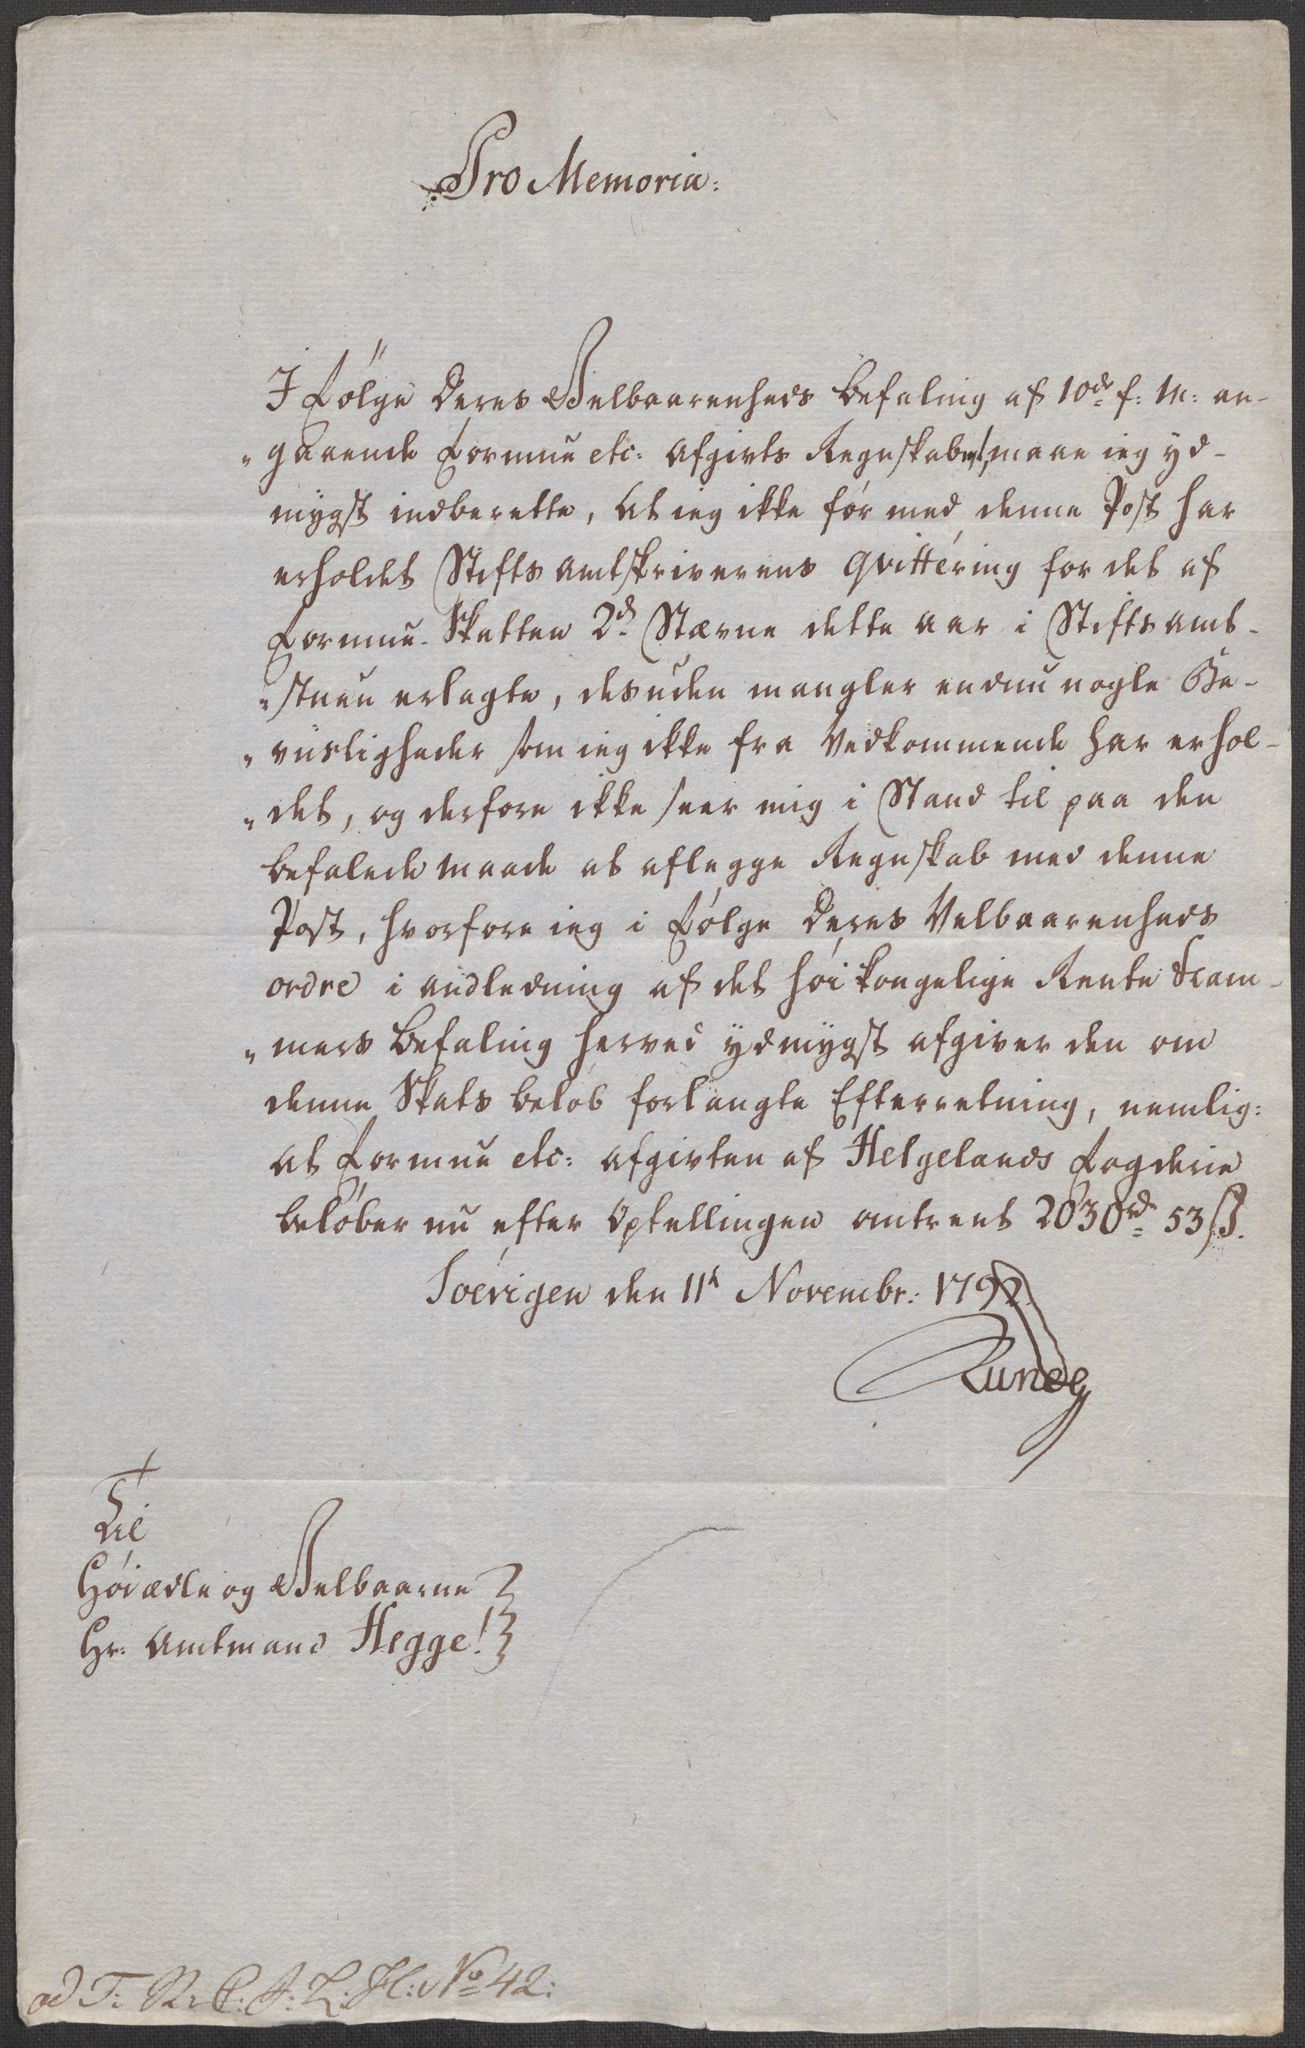 Pro Memoria:
I følge Deres Velbaarenheds Befaling af 10de f: M: an-
„gaaende Formue etc: Afgivts Regnskabet, maae ieg yd-
mygst indberette, at ieg ikke før med denne Post har
erholdet Stiftsamtskriverens Qvittering for det af
Formue-Skatten 2d Stævne dette aar i Stiftsamt-
„stuen erlagte, desuden mangler endnu nogle Be-
„viisligheder som ieg ikke fra Vedkommende har erhol-
„det, og derfore ikke seer mig i Stand til paa den
befalede maade at aflegge Regnskab med denne
Post, hvorfore ieg i følge Deres Velbaarenheds
ordre i anledning af det høi kongelige Rente Kam-
„mers Befaling herved ydmygst afgiver den om
denne Skats beløb forlangte Efterretning, nemlig:
at Formue etc: afgivten af Helgelands Fogderie
beløber nu efter Optellingen omtrent 2030 rd 53 ß.
Soevigen den 11t Novembr: 179
Til
Høiædle og Velbaarne
Hr: Amtmand Hegge!
ad T: R: C: J: L: Jl: No 42: